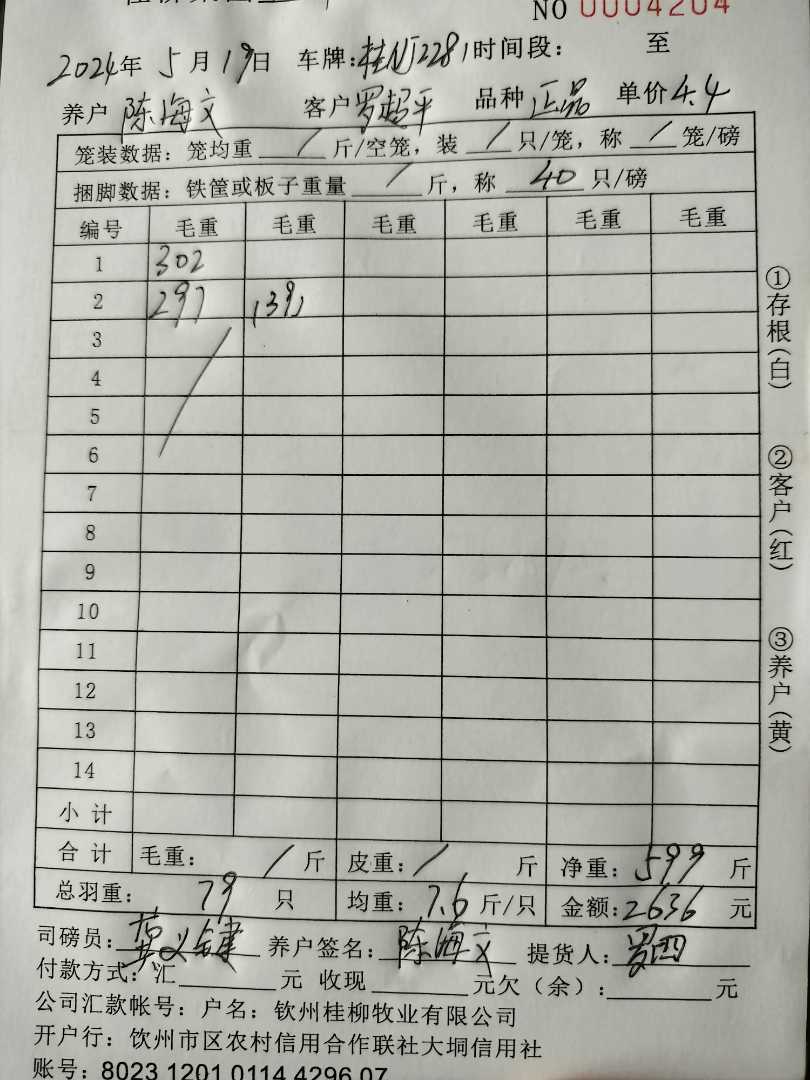 NO 0004204
2024年 5月19日 车牌:桂NJ2281时间段: 至
养户 陈海文 客户罗超平 品种 正品 单价4.4
笼装数据: 笼均重 / 斤/空笼, 装 / 只/笼, 称 / 笼/磅
捆脚数据: 铁筐或板子重量 / 斤, 称 40 只/磅
编号 毛重 毛重 毛重 毛重 毛重 毛重
1 302
2 297 (39)
3
4
5
6
7
8
9
10
11
12
13
14
小计
合计 毛重: / 斤 皮重: / 斤 净重: 599 斤
总羽重: 79 只 均重: 7.6 斤/只 金额:2636 元
司磅员: 养户签名: 陈海文 提货人: 罗四
付款方式: 汇 元 收现 元欠(余): 元
公司汇款帐号: 户名: 钦州桂柳牧业有限公司
开户行: 饮州市区农村信用合作联社大垌信用社
账号: 8023 1201 0114 4296 07
①存根(白)
②客户(红)
③养户(黄)